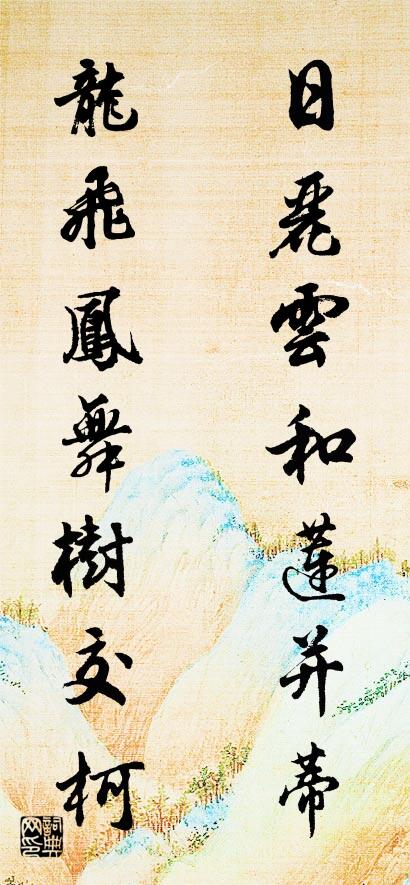 日麗雲和蓮并蒂
龍飛鳳舞樹交柯
詞典
网印